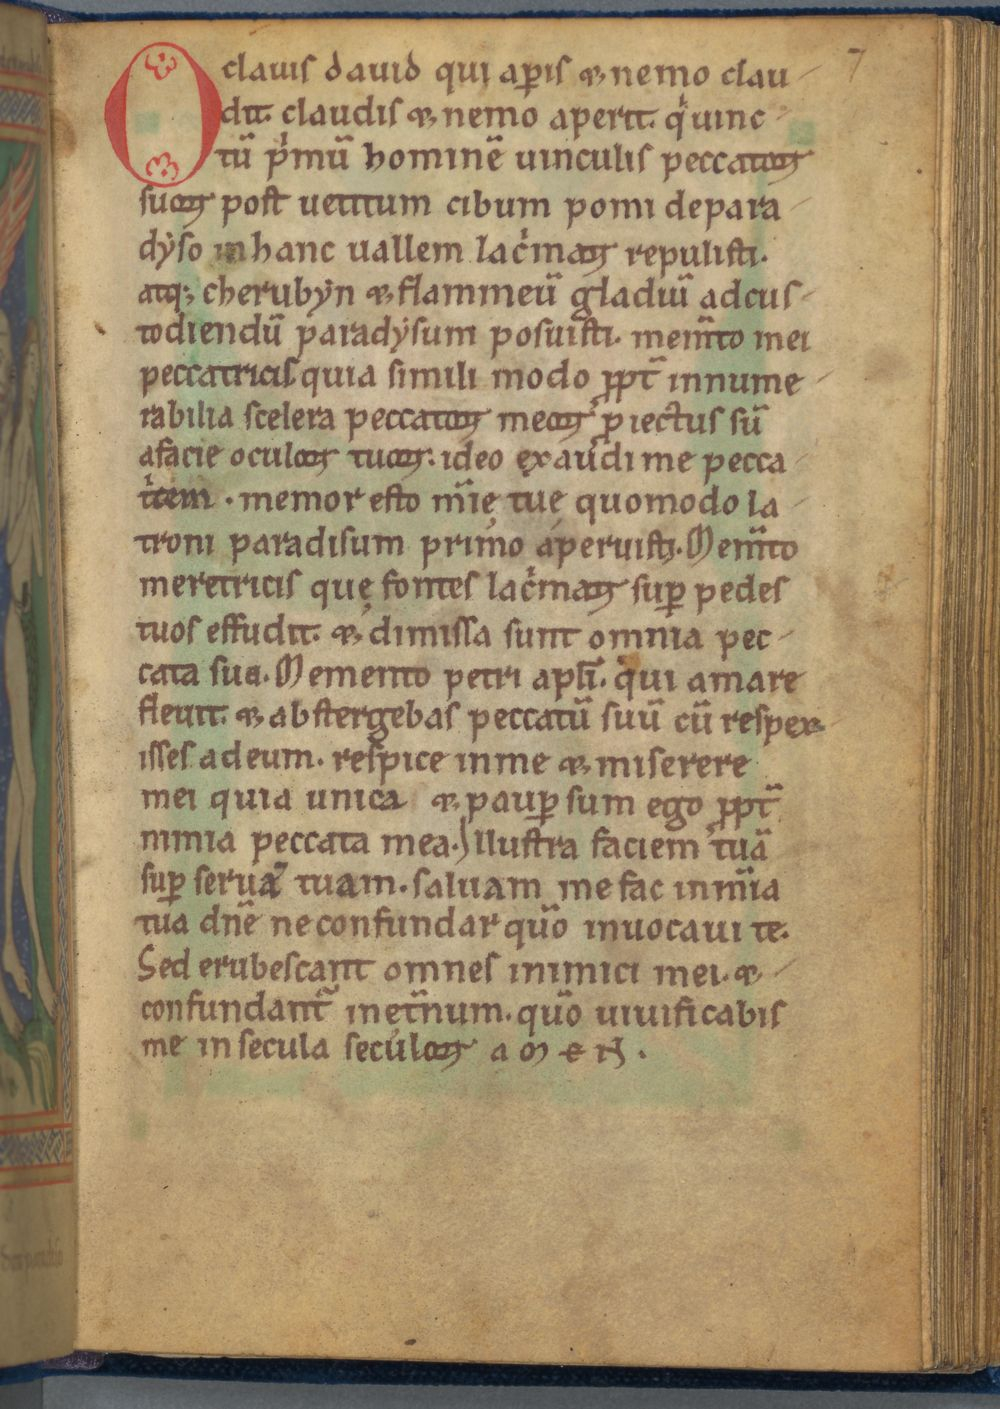 7
O clauis dauid qui aꝑis & nemo clau
dit. claudis & nemo aperit. qͥ uinc
tū pͥmū hominē uinculis peccatoꝝ
suoꝝ post uetitum cibum pomi de para
dẏso in hanc uallem lacͥmaꝝ repulisti.
atq; cherubẏn & flammeū gladiū ad cus
todiendū paradẏsum posuisti. mem̄to mei
peccatricis. quia simili modo ꝓpt̄ innume
rabilia scelera peccatoꝝ meoꝝ ꝓiectus sū
a facie oculoꝝ tuoꝝ. ideo exaudi me pecca
tͥcem. memor esto m̄ię tuę quomodo la
troni paradisum primo aperuisti. Mem̄to
meretricis quę fontes lacͥmaꝝ suꝑ pedes
tuos effudit. & dimissa sunt omnia pec
cata sua. Memento petri apłi. qui amare
fleuit. & abstergebas peccatū suū cū respex
isses ad eum. respice in me & miserere
mei quia unica & pauꝑ sum ego ꝓpt̄
nimia peccata mea. Illustra faciem tuā
suꝑ seruā tuam. saluam me fac in m̄ia
tua dn̄e ne confundar qūo inuocaui te.
Sed erubescant omnes inimici mei. &
confundant̄ in ęt̄num. qūo uiuificabis
me in secula seculoꝝ amen.